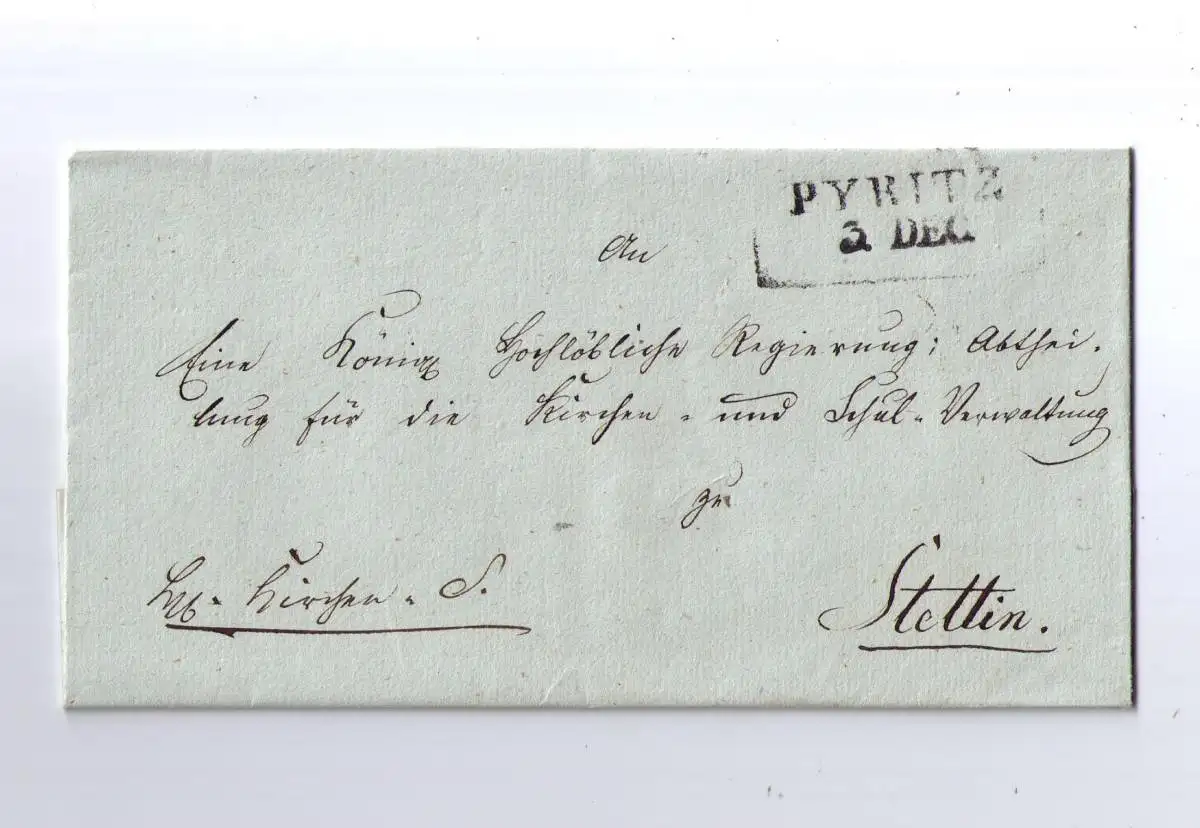 PYRITZ
3. DEC.
An
Eine Königl Hochlöbliche Regierung; Abthei-
lung für die Kirchen- und Schul-Verwaltung
zu
Kirchen-S.
Stettin.